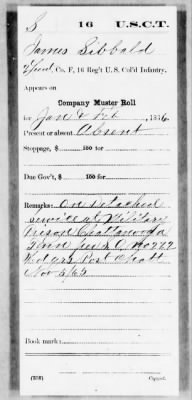 S | 16 | U.S.C.T.
James Sibbald
Co. F, 16 Reg't U. S. Col'd Infantry.
Appears on
Company Muster Roll
for Jan & Feb, 1866
Present or absent Absent
Stoppage, $ 100 for
Due Gov't, $ 100 for
Remarks: On detached
service at Military
Prison Chattanooga
Tenn per S.O. No 222
Hd Qrs Post Chatt
Nov 5/65
Book mark:
(358)
Copyist.